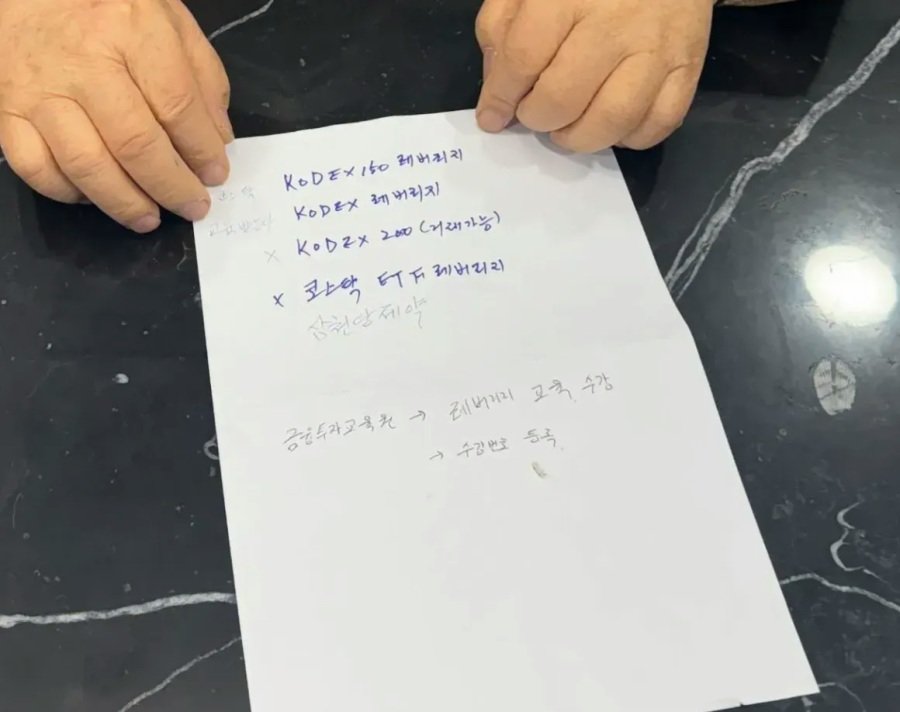 코스닥 KODEX 150 레버리지
KODEX 레버리지
x KODEX 200 (거래가능)
x 코스닥 ETF 레버리지
삼천당제약
금융투자교육원 → 레버리지 교육, 수강
→ 수강번호 등록.